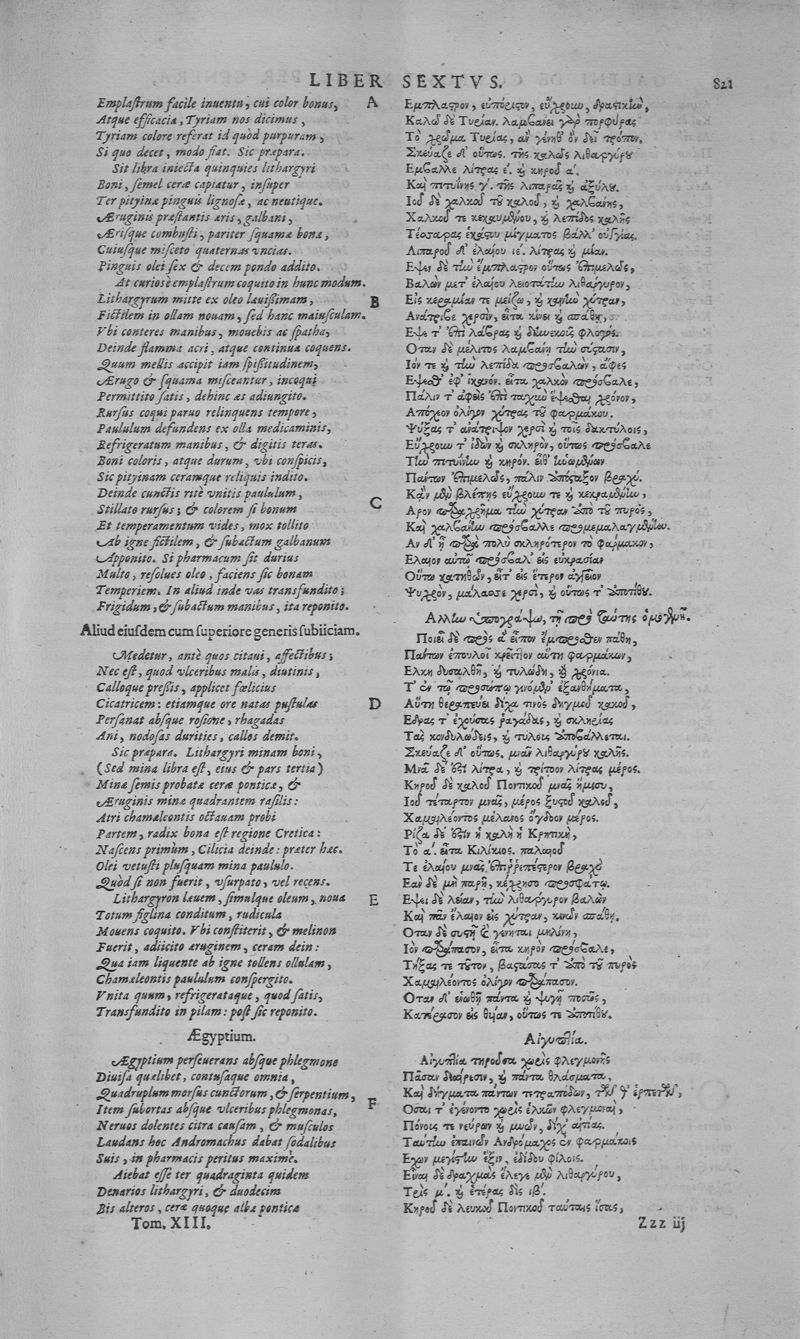 LIBER SEXTVS. 821
Emplastrum facile inuentu, cui color bonus,
Atque efficacia, Tyriam nos dicimus,
Tyriam colore referat id quòd purpuram,
Si quo decet, modo fiat. Sic præpara.
Sit libra iniecta quinquies lithargyri
Boni, semel ceræ capiatur, insuper
Ter pityinæ pinguis lignosæ, ac neutique.
Æruginis præstantis æris, galbani,
Ærisque combusti, pariter squamæ bonæ,
Cuiusque misceto quaternas vncias.
Pinguis olei sex & decem pondo addito.
At curiosè emplastrum coquito in hunc modum.
Lithargyrum mitte ex oleo læuissimam,
Fictilem in ollam nouam, sed hanc maiusculam.
Vbi conteres manibus, mouebis ac spatha,
Deinde flamma acri, atque continua coquens.
Quum mellis accipit iam spissitudinem,
Ærugo & squama misceantur, incoqui
Permittito satis, dehinc æs adiungito.
Rursus coqui paruo relinquens tempore,
Paululum defundens ex olla medicaminis,
Refrigeratum manibus, & digitis teras.
Boni coloris, atque durum, vbi conspicis,
Sic pityinam ceramque reliquis indito.
Deinde cunctis ritè vnitis paululum,
Stillato rursus; & colorem si bonum
Et temperamentum vides, mox tollito
Ab igne fictilem, & subactum galbanum
Apponito. Si pharmacum sit durius
Multo, resolues oleo, faciens sic bonam
Temperiem. In aliud inde vas transfundito;
Frigidum, & subactum manibus, ita reponito.
Aliud eiusdem cum superiore generis subiiciam.
Medetur, antè quos citaui, affectibus;
Nec est, quod vlceribus malis, diutinis,
Calloque pressis, applicet fœlicius
Cicatricem: etiamque ore natas pustulas
Persanat absque rosione, rhagadas
Ani, nodosas durities, callos demit.
Sic præpara. Lithargyri minam boni,
(Sed mina libra est, eius & pars tertia)
Minæ semis probatæ ceræ ponticæ, &
Æruginis minæ quadrantem rasilis:
Atri chamæleontis octauam probi
Partem, radix bona est regione Cretica:
Nascens primùm, Cilicia deinde: præter hæc.
Olei vetusti plusquam mina paululo.
Quòd si non fuerit, vsurpato, vel recens.
Lithargyron læuem, simulque oleum, noua
Totum figlina conditum, rudicula
Mouens coquito. Vbi constiterit, & melinon
Fuerit, adiicito æruginem, ceram dein:
Qua iam liquente ab igne tollens ollulam,
Chamæleontis paululum conspergito.
Vnita quum, refrigerataque, quod satis,
Transfundito in pilam: post sic reponito.
Ægyptium.
Ægyptium perseuerans absque phlegmone
Diuisa quælibet, contusaque omnia,
Quadruplum morsus cunctorum, & serpentium,
Item subortas absque vlceribus phlegmonas,
Neruos dolentes citra causam, & musculos
Laudans hoc Andromachus dabat sodalibus
Suis, in pharmacis peritus maximè.
Aiebat esse ter quadraginta quidem
Denarios lithargyri, & duodecim
Bis alteros, ceræ quoque albæ ponticæ
Tom. XIII.
A
B
C
D
E
F
Εμπλαστρον, εὐπόριστον, εὔχρουν, δραστικὸν,
Καλοῦ δὲ Τυρίαν. λαμβάνει γὰρ πορφύρας
Τὸ χρῶμα Τυρίας, ἂν γένηθ' ὃν δεῖ τρόπον.
Σκεύαζε δ' οὕτως. τῆς καλῶς λιθαργύρου
Εμβαλλε λίτρας ε'. καὶ κηροῦ α'.
Καὶ πιτυΐνης γ'. τῆς λιπαρᾶς καὶ ἀξύλου.
Ιοῦ δὲ χαλκοῦ τοῦ καλοῦ, καὶ χαλβάνης,
Χαλκοῦ τε κεκαυμένου, καὶ λεπίδος καλῆς
Τέσσαρας ἑκάστου μίγματος βάλλ' οὐγγίας.
Λιπαροῦ δ' ἐλαίου ιε'. λίτρας καὶ μίαν.
Εψει δὲ τὴν ἔμπλαστρον οὕτως ἐπιμελῶς,
Βαλὼν μετ' ἐλαίου λειοτάτην λιθάργυρον,
Εἰς κεραμίαν τε μείζω, καὶ καινὴν χύτραν,
Ανάτριβε χερσὶν, εἶτα κίνει καὶ σπάθῃ,
Εψε τ' ἐπὶ λάβρας καὶ διηνεκοῦς φλογός.
Οταν δὲ μέλιτος λαμβάνῃ τὴν σύστασιν,
Ιόν τε καὶ τὴν λεπίδα προσβαλὼν, ἄφες
Εψεῖσθ' ἐφ' ἱκανόν. εἶτα χαλκὸν πρόσβαλε,
Πάλιν τ' ἀφεὶς ἐπὶ ταχὺν ἕψεσθαι χρόνον,
Απόχεον ὀλίγον χύτρας τοῦ φαρμάκου.
Ψύξας τ' ἀνάτριψον χερσὶ καὶ τοῖς δακτύλοις,
Εὔχρουν τ' ἰδὼν καὶ σκληρὸν, οὕτως πρόσβαλε
Τὴν πιτυΐνην καὶ κηρόν. εἶθ' ἑνωμένων
Πάντων ἐπιμελῶς, πάλιν ἀπόσταξον βραχύ.
Κἂν μὲν βλέπῃς εὔχρουν τε καὶ κεκραμένην,
Αρον παραχρῆμα τὴν χύτραν ἀπὸ τοῦ πυρὸς,
Καὶ χαλβάνην πρόσβαλλε προμεμαλαγμένην.
Αν δ' ᾖ παρὰ πολὺ σκληρότερον τὸ φάρμακον,
Ελαιον αὐτῷ πρόσβαλ' εἰς εὐκρασίαν
Οὕτω κατηθῶν, εἶτ' εἰς ἕτερον ἀγγεῖον
Ψυχρὸν, μάλασσε χερσὶ, καὶ οὕτως τ' ἀποτίθου.
Αλλην ὑπογράψω, τῇ πρὸ ταύτης ὁμογενῆ.
Ποιεῖ δὲ πρὸς ἃ εἶπον ἔμπροσθεν πάθη,
Πάντων ἐπουλοῖ κρεῖττον αὕτη φαρμάκων,
Ελκη δυσαλθῆ, καὶ τυλώδη, καὶ χρόνια.
Τ' ἐν τῷ προσώπῳ γινόμεν' ἐξανθήματα,
Αὕτη θεραπεύει δίχα τινὸς δηγμοῦ κακοῦ,
Εδρας τ' ἐχούσας ῥαγάδας, καὶ σκληρίας
Τὰς κονδυλώδεις, καὶ τύλους ἀποβάλλεται.
Σκεύαζε δ' οὕτως. μνᾶν λιθαργύρου καλῆς.
Μνᾶ δέ ἐστι λίτρα, καὶ τρίτον λίτρας μέρος.
Κηροῦ δὲ καλοῦ Ποντικοῦ μνᾶς ἥμισυ,
Ιοῦ τέταρτον μνᾶς, μέρος ξυστοῦ καλοῦ,
Χαμαιλέοντος μέλανος ὄγδοον μέρος.
Ρίζα δέ ἐστιν ἡ καλὴ ἡ Κρητικὴ,
Τὸ α'. εἶτα Κιλίκιος. παλαιοῦ
Τε ἐλαίου μνᾶς ἐπιρρεπέστερον βραχὺ
Εαν δὲ μὴ παρῇ, κέχρησο προσφάτῳ.
Εψει δὲ λείαν, τὴν λιθάργυρον βαλὼν
Καὶ πᾶν ἔλαιον εἰς χύτραν, κινῶν σπάθῃ.
Οταν δὲ συστῇ καὶ γένηται μηλίνη,
Ιὸν παράπασον, εἶτα κηρὸν πρόσβαλε,
Τήξας τε τοῦτον, βαστάσας τ' ἀπὸ τοῦ πυρὸς
Χαμαιλέοντος ὀλίγον παράπασον.
Οταν δ' ἑνωθῇ πάντα καὶ ψυγῇ ποσῶς,
Κατέρασον εἰς θυίαν, οὕτως τε ἀποτίθου.
Αἰγυπτία.
Αἰγυπτία τηροῦσα χωρὶς φλεγμονῆς
Πᾶσαν διαίρεσιν, καὶ πάντα θλάσματα,
Καὶ δήγματα πάντων τετραπόδων, τῶν θ' ἑρπετῶν,
Οσαι τ' ἐγένοντο χωρὶς ἑλκῶν φλεγμοναὶ,
Πόνοις τε νεύρων καὶ μυῶν, δίχ' αἰτίας.
Ταύτην ἐπαινῶν Ανδρόμαχος ἐν φαρμάκοις
Εχων μεγίστην ἕξιν, ἐδίδου φίλοις.
Εἶναι δὲ δραχμὰς ἔλεγε μὲν λιθαργύρου,
Τρὶς μ'. καὶ ἑτέρας δὶς ιβ'.
Κηροῦ δὲ λευκοῦ Ποντικοῦ ταύταις ἴσας,
Zzz iij